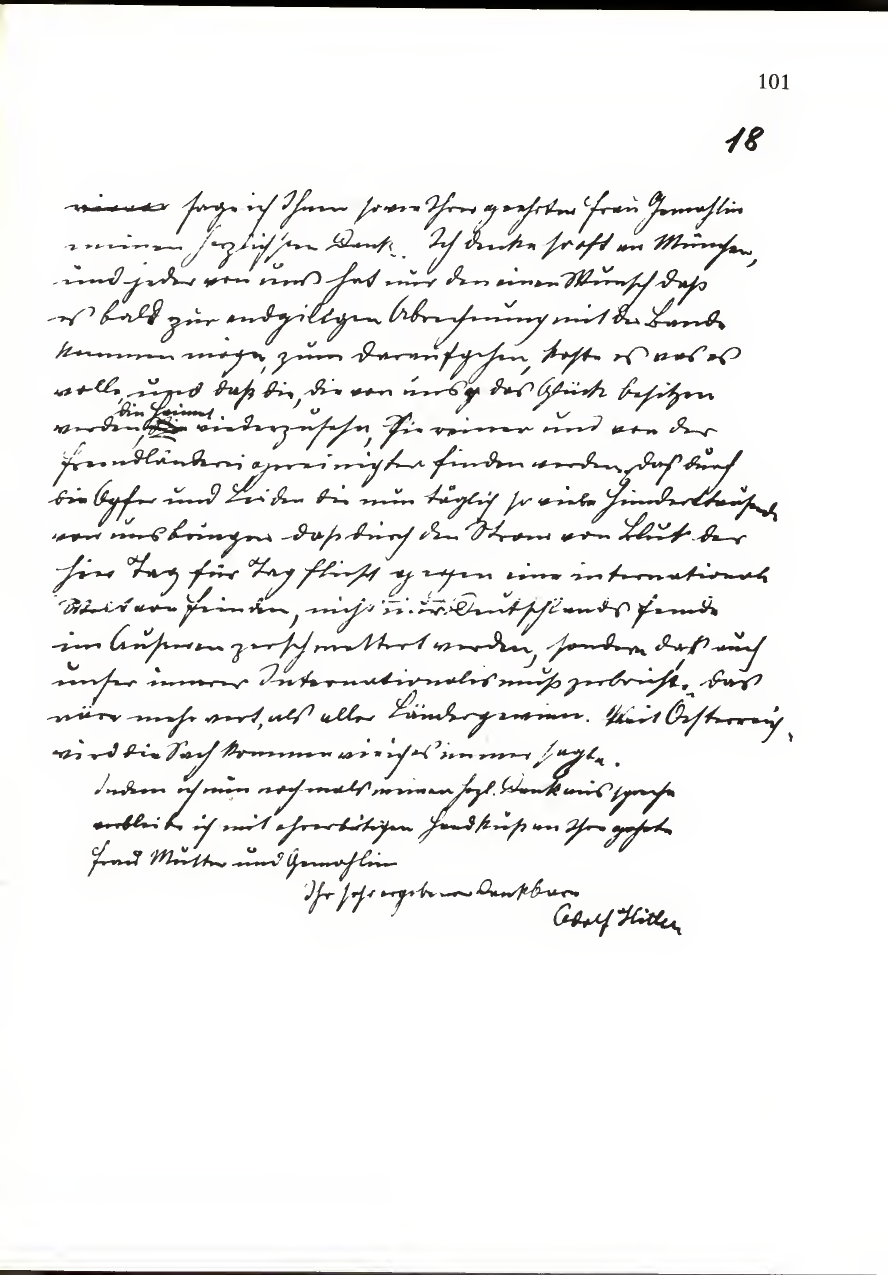 101
18
meinen sage ich Ihnen sowie Ihrer geehrten Frau Gemahlin
meinen herzlichsten Dank. Ich denke so oft an München,
und jeder von uns hat nur den einen Wunsch daß
es bald zur endgiltigen Abrechnung mit der Bande
kommen möge, zum Daraufgehen, koste es was es
wolle, und daß die, die von uns das Glück besitzen
werden, die Heimat wiederzusehn, sie reiner und von der
Fremdländerei gereinigter finden werden, daß durch
die Opfer und Leiden die nun täglich so viele Hunderttausende
von uns bringen daß durch den Strom von Blut der
hier Tag für Tag fließt gegen eine internationale
Welt von Feinden, nicht nur Deutschlands Feinde
im Äußeren zerschmettert werden, sondern daß auch
unser innerer Internationalismuß zerbricht. Das
wäre mehr wert, als aller Ländergewinn. Mit Österreich
wird die Sache kommen wie ich es immer sagte.
Indem ich nun nochmals meinen hzl. Dank ausspreche
verbleibe ich mit ehrerbietigem Handkuß an Ihre geehrte
Frau Mutter und Gemahlin
Ihr sehr ergebener dankbarer
Adolf Hitler